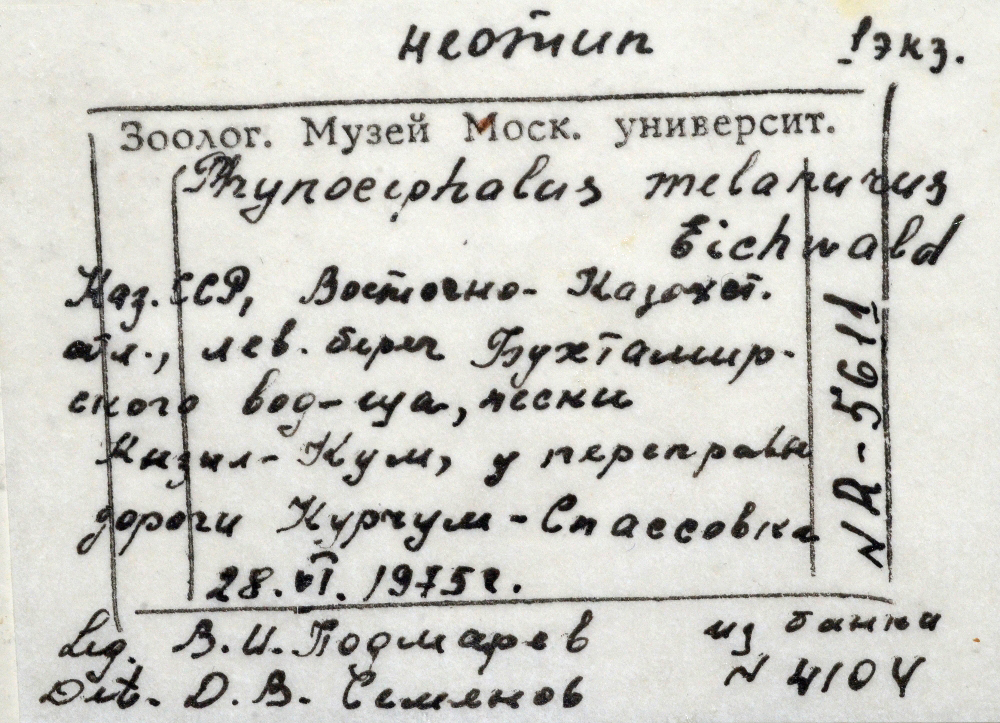 неотип 1 экз.
Зоолог. Музей Моск. университ.
Phrynocephalus melanurus
Eichwald
Каз. ССР, Восточно-Казахст.
обл., лев. берег Бухтамир-
ского вод-ща, пески
Кызыл-Кум, у переправы
дороги Курчум-Спассовка
28.VI.1975г.
N R-5611
Leg. В.И. Подмарев из банки
Det. Д.В. Семенов N 4104